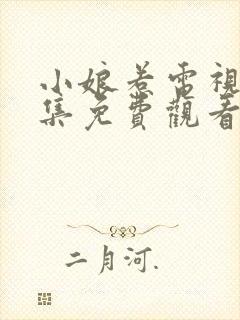 小娘惹電視
集免費觀看
二月河.